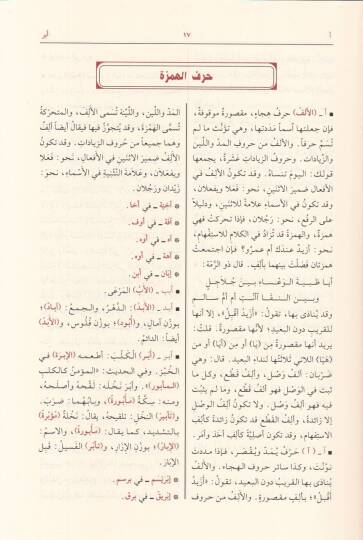 أ
١٧
أبر
حرف الهمزة
■ أ ـ (الألف) حرفُ هجاءٍ، مقصورةٌ موقوفةٌ،
فإن جعلتَها اسماً مَدَدتَها، وهي تؤنَّث ما لم
تُسَمَّ حرفاً. والألف من حروف المدّ واللِّين
والزِّيادات. وحروفُ الزياداتِ عَشرَةٌ، يجمعها
قولك: اليومَ تنساهُ. وقد تكون الألِف في
الأفعالِ ضميرَ الاثنين، نحو: فَعَلا ويفعلان،
وقد تكون في الأسماءِ علامةً للاثنين، ودليلاً
على الرفع، نحو: رَجُلان، فإذا تحركتْ فهي
همزة، والهمزةُ قد تُزادُ في الكلام للاستفهامِ،
نحو: أزيدٌ عندَك أم عمرٌو؟ فإن اجتمعتْ
همزتان فَصَلْتَ بينهما بألِفٍ. قال ذو الرُّمّة:
أيا ظبيةَ الوَعْساءِ بين جُلاجلٍ
وبين النقا آأنتِ أم أمُّ سالم
وقد يُنادَى بها، تقولُ: «أزيدُ أقبِلْ»، إلا أنها
للقريب دون البعيد؛ لأنها مقصورةٌ. قلتُ:
يريد أنها مقصورةٌ مِن (يا) أو مِن (أيا) أو من
(هَيَا) اللاتي ثلاثَتُها لنداءِ البعيد. قال: وهي
ضربان: ألفُ وَصْل، وألف قَطْع، وكل ما
ثبت في الوَصْل فهو ألفُ قَطْع، وما لم يثبُتْ
فيه فهو ألفُ وَصْل. ولا تكونُ ألفُ الوصلِ
إلا زائدةً، وألفُ القَطْع قد تكونُ زائدةً كألِفِ
الاستفهام، وقد تكون أصليَّة كألِف أخَذ وأمَر.
■ آ ـ (آ) حَرْفٌ يُمَدُّ ويُقْصَر، فإذا مددتَ
نوّنْتَ، وكذا سائر حروف الهجاء. والألفُ
يُنَادَى بها القريبُ دون البعيد، تقول: «أزيدُ
أقبِلْ»؛ بألِفٍ مقصورةٍ. والألِفُ من حروف
المَدِّ واللّين، واللَّيِّنَة تُسمى الألِفَ، والمتحرِّكةُ
تُسمَّى الهَمْزَةَ، وقد يُتجوَّزُ فيها فيقالُ أيضاً ألِفٌ
وهما جميعاً من حُروف الزيادات. وقد تكونُ
الألِفُ ضَميرَ الاثنين في الأفعال، نحو: فَعَلا
ويَفعَلان، وعَلامةَ التَّثنيةِ في الأسْماءِ، نحو:
زَيْدانِ ورَجُلان.
* آخيّة ـ في أخا.
* آفة ـ في أوف.
* آه ـ في أوه.
* آهة ـ في أوه.
* إبّان ـ في أبن.
■ أبب ـ (الأبُّ) المَرْعَى.
■ أبد ـ (الأبَدُ): الدَّهْرُ، والجمعُ: (آبادٌ)؛
بوزنِ آمالٍ، و(أُبود)؛ بوزْنِ فُلُوس، و(الأَبَدُ)
أيضاً: الدائمُ.
■ أبر ـ (أبَرَ) الكَلْبَ: أطعمه (الإبرةَ) في
الخُبْز. وفي الحديث: «المؤمنُ كالكلبِ
المأبورِ». وأبَرَ نَخْلَه: لقَّحهُ وأصلحهُ،
ومنه: سِكّةٌ (مأبُورةٌ)، وبابُهما: ضرَبَ.
و(تأبيرُ) النَّخل: تلقيحهُ، يقال: نَخْلةٌ (مُؤَبَّرة)
بالتشديد، كما يقال: (مأبُورة)، والاسم:
(الإبَارُ)؛ بوزن الإزار، و(تأبَّر) الفَسيلُ: قَبِلَ
الإبَار.
* إبْرَيْسَم ـ في برسم.
* إبْريق ـ في برق.